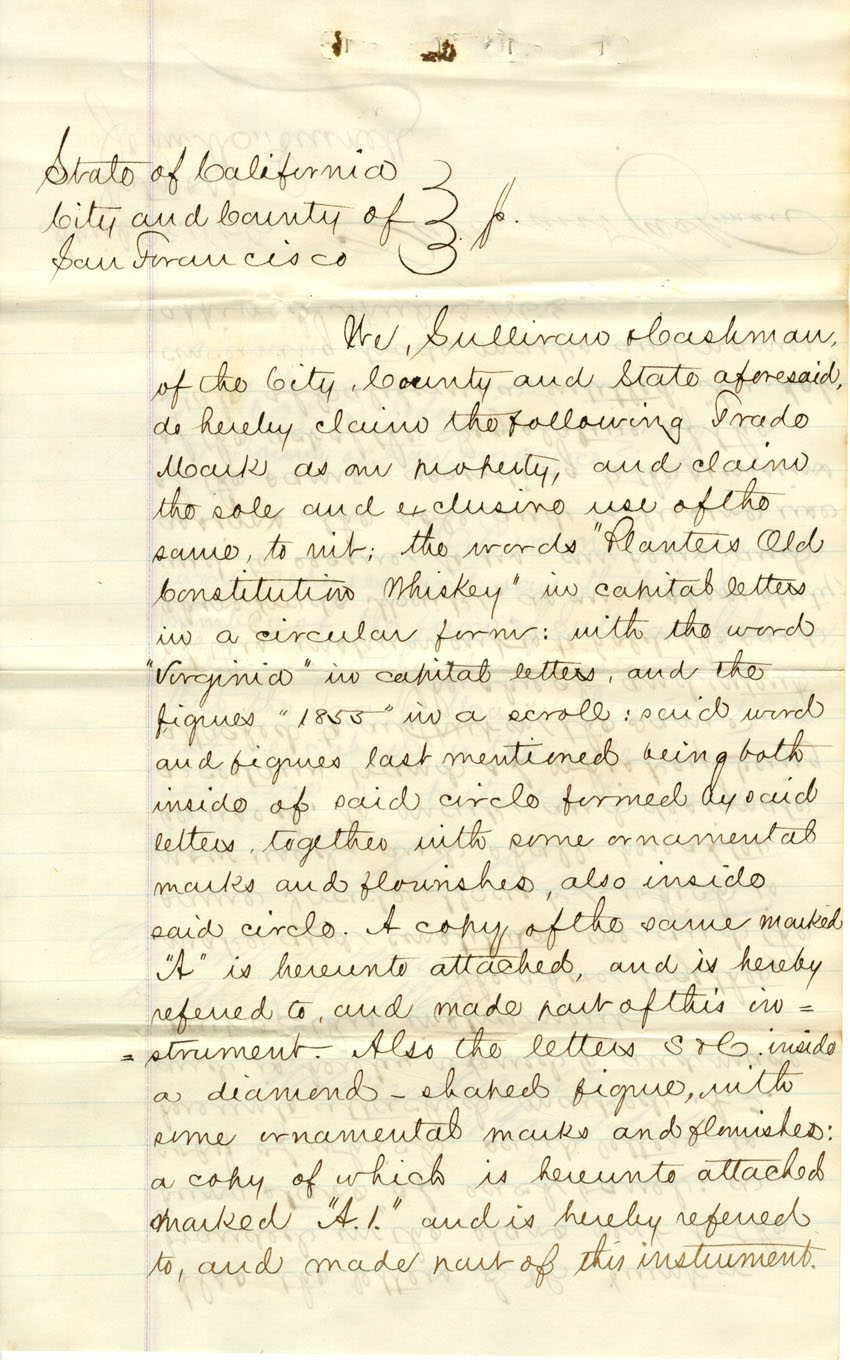 State of California
City and County of } ss.
San Francisco
We, Sullivan & Cashman,
of the City, County and State aforesaid,
do hereby claim the following Trade
Mark as our property, and claim
the sole and exclusive use of the
same, to wit; the words "Planters Old
Constitution Whiskey" in capital letters
in a circular form: with the word
"Virginia" in capital letters, and the
figures "1855" in a scroll: said word
and figures last mentioned being both
inside of said circle formed by said
letters, together with some ornamental
marks and flourishes, also inside
said circle. A copy of the same marked
"A" is hereunto attached, and is hereby
referred to, and made part of this in=
=strument. Also the letters S & C. inside
a diamond-shaped figure, with
some ornamental marks and flourishes:
a copy of which is hereunto attached
marked "A.1." and is hereby referred
to, and made part of this instrument.